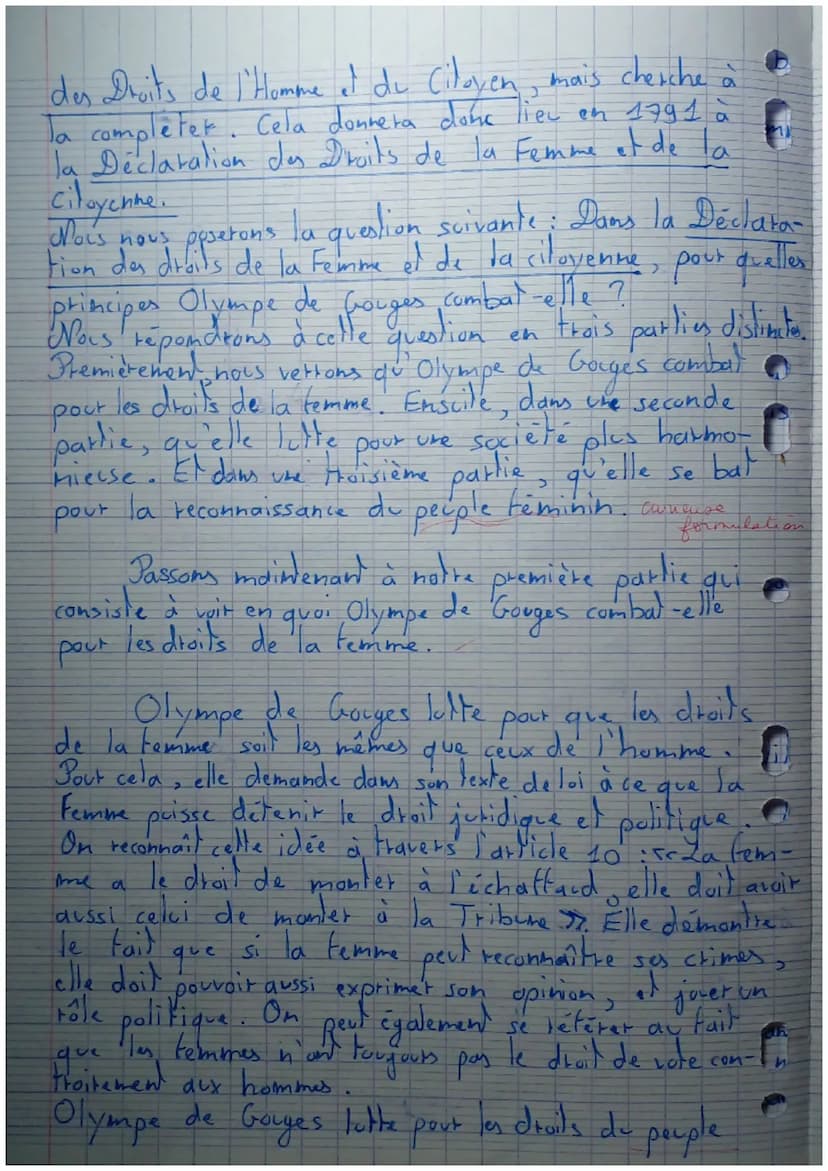 des Droits de l'Homme et du Citoyen, mais cherche à
la compléter. Cela donnera donc lieu en 1791 à
la Déclaration des Droits de la Femme et de la
Citoyenne.
Nous nous poserons la question suivante : Dans la Déclara-
tion des droits de la Femme et de la citoyenne, pour quelles
principes Olympe de Gouges combat-elle ?
Nous répondrons à cette question en trois parties distinctes.
Premièrement, nous verrons qu'Olympe de Gouges combat
pour les droits de la femme. Ensuite, dans une seconde
partie, qu'elle lutte pour une société plus harmo-
nieuse. Et dans une troisième partie, qu'elle se bat
pour la reconnaissance du peuple féminin. curieuse
formulation
Passons maintenant à notre première partie qui
consiste à voir en quoi Olympe de Gouges combat-elle
pour les droits de la femme.
Olympe de Gouges lutte pour que les droits
de la femme soit les mêmes que ceux de l'homme.
Pour cela, elle demande dans son texte de loi à ce que la
Femme puisse détenir le droit juridique et politique.
On reconnaît cette idée à travers l'article 10 : << La fem-
me a le droit de monter à l'échaffaud, elle doit avoir
aussi celui de monter à la Tribune >>. Elle démontre
le fait que si la femme peut reconnaître ses crimes,
elle doit pouvoir aussi exprimer son opinion, et jouer un
rôle politique. On peut également se référer au fait
que les femmes n'ont toujours pas le droit de vote con-
trairement aux hommes.
Olympe de Gouges lutte pour les droits du peuple